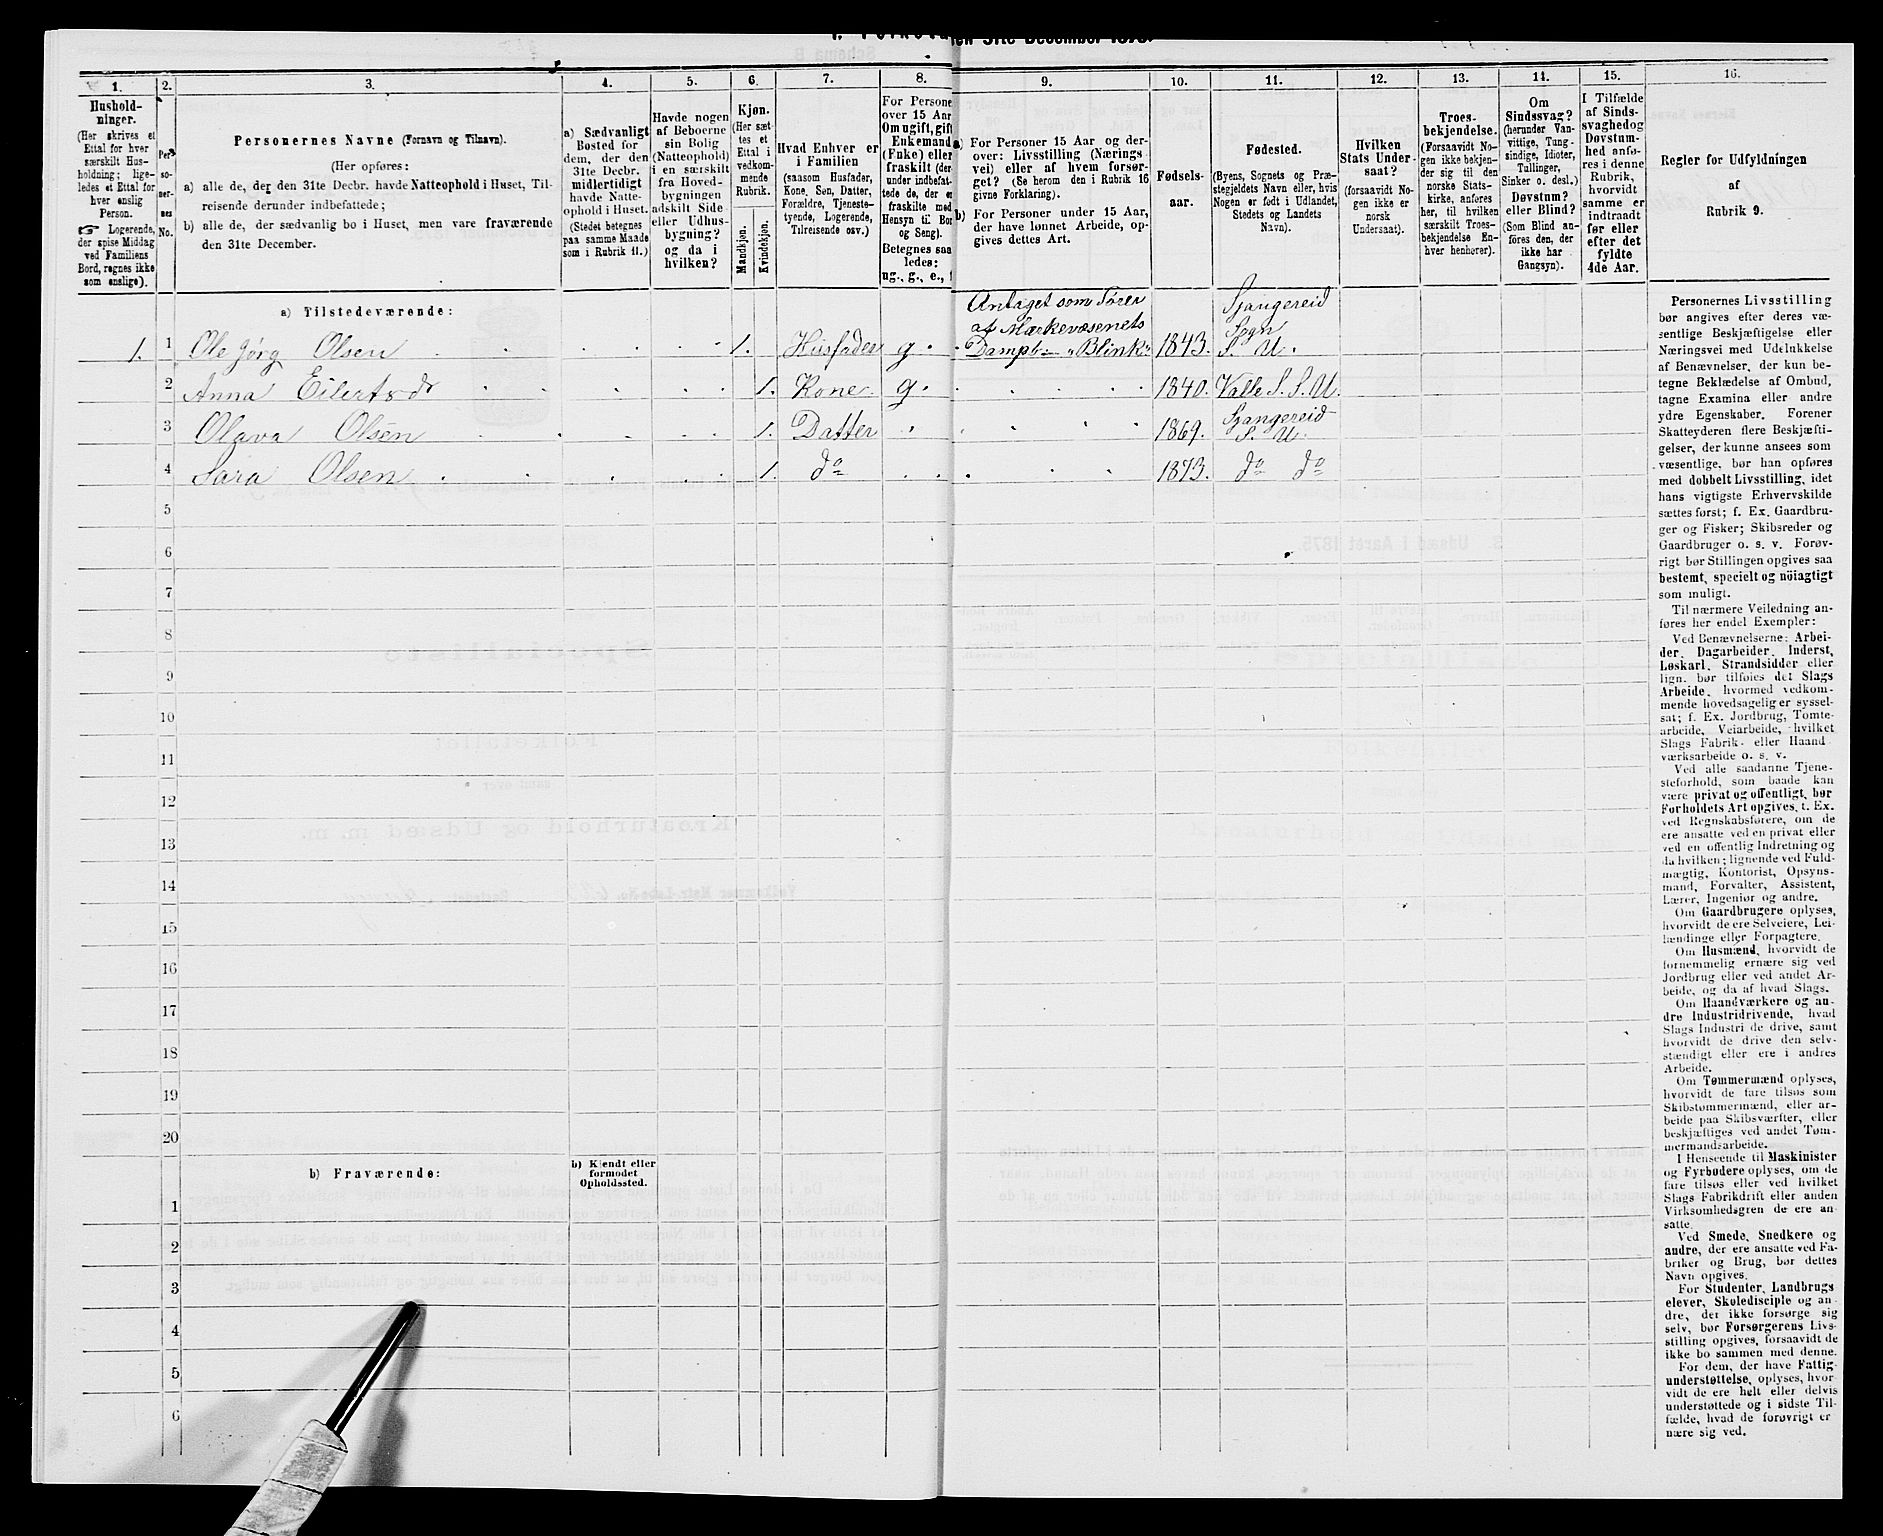 1.
2.
3.
4.
5.
6.
7.
8.
Hushold-
ninger.
(Her skrives et
Ettal for hver
særskilt Hus-
holdning; lige-
ledes et Ettal for
hver enslig
Person.
☞ Logerende,
der spise Middag
ved Familiens
Bord, regnes ikke
som enslige).
Per-
so-
ner-
nes
No.
Personernes Navne (Fornavn og Tilnavn).
(Her opføres:
a) alle de, der den 31te Decbr. havde Natteophold i Huset, Til-
reisende derunder indbefattede;
b) alle de, der sædvanlig bo i Huset, men vare fraværende
den 31te December.
a) Sædvanligt
Bosted for
dem, der den
31te Decbr.
midlertidigt
havde Natte-
ophold i Huset.
(Stedet betegnes
paa samme Maade
som i Rubrik 11.)
Havde nogen
af Beboerne
sin Bolig
(Natteophold)
i en særskilt
fra Hoved-
bygningen
adskilt Side-
eller Udhus-
bygning?
og da i
hvilken?
Kjøn.
(Her sæt-
tes et
Ettal i
vedkom-
mende
Rubrik.
Mandkjøn.
Kvindekjøn.
Hvad Enhver er
i Familien
(saasom Husfader,
Kone, Søn, Datter,
Forældre, Tjeneste-
tyende, Logerende,
Tilreisende osv.)
For Persone
over 15 Aar
Om ugift, gift
Enkemand
(Enke) eller
fraskilt (der-
under indbefat-
tede de, der er
fraskilte med
Hensyn til Bor
og Seng).
Betegnes saa
ledes:
ug., g., e., f
9.
10.
11.
12.
13.
14.
15.
16.
a) For Personer 15 Aar og der-
over: Livsstilling (Nærings
vei) eller af hvem forsør-
get? (Se herom den i Rubrik 16
givne Forklaring).
b) For Personer under 15 Aar,
der have lønnet Arbeide, op-
gives dettes Art.
Fødsels-
aar.
Fødested.
(Byens, Sognets og Præ-
stegjeldets Navn eller, hvis
Nogen er født i Udlandet,
Stedets og Landets
Navn).
Hvilken
Stats Under-
saat?
(forsaavidt No-
gen ikke er
norsk
Undersaat).
Troes-
bekjendelse.
(Forsaavidt No-
gen ikke bekjen-
der sig til den
norske Stats-
kirke, anføres
her, til hvilken
særskilt Troes-
bekjendelse En-
hver henhører).
Om
Sindssvag?
(herunder Van-
vittige, Tung-
sindige, Idioter,
Tullinger,
Sinker o. desl.)
Døvstum?
eller Blind?
(Som Blind an-
føres den, der
ikke har
Gangsyn).
I Tilfælde
af Sinds-
svaghed og
Døvstum-
hed anfø-
res i denne
Rubrik,
hvorvidt
samme er
indtraadt
før eller
efter det
fyldte
4de Aar.
Regler for Udfyldningen
af
Rubrik 9.
a) Tilstedeværende:
1. 1 Ole Jörg Olsen 1. Husfader g. Antaget som Fører af Mærkevæsenets Dampb. "Blink" 1843. Spangereid Sogn S. U.
2 Anna Eilertsdr 1. Kone g. 1840. Valle S. S. U.
3 Olava Olsen 1. Datter 1869. Spangereid S. U.
4 Sara Olsen 1. do 1873. do do
5
6
7
8
9
10
11
12
13
14
15
16
17
18
19
20
b) Fraværende:
b) Kjendt eller
formodet
Opholdssted.
1
2
3
4
5
6
Personernes Livsstilling
bør angives efter deres væ-
sentlige Beskjæftigelse eller
Næringsvei med Udelukkelse
af Benævnelser, der kun be-
tegne Beklædelse af Ombud,
tagne Examina eller andre
ydre Egenskaber. Forener
Skatteyderen flere Beskjæfti-
gelser, der kunne ansees som
væsentlige, bør han opføres
med dobbelt Livsstilling, idet
hans vigtigste Erhvervskilde
sættes først; f. Ex. Gaardbru-
ger og Fisker; Skibsreder og
Gaardbruger o. s. v. Forøv-
rigt bør Stillingen opgives saa
bestemt, specielt og nöiagtigt
som muligt.
Til nærmere Veiledning an-
føres her endel Exempler:
Ved Benævnelserne: Arbei-
der, Dagarbeider, Inderst,
Løskarl, Strandsidder eller
lign. bør tilføies det Slags
Arbeide, hvormed vedkom-
mende hovedsagelig er syssel-
sat; f. Ex. Jordbrug, Tomte-
arbeide, Veiarbeide, hvilket
Slags Fabrik- eller Haand
værksarbeide o. s. v.
Ved alle saadanne Tjene-
steforhold, som baade kan
være privat og offentligt, bør
Forholdets Art opgives, t. Ex.
ved Regnskabsførere, om de
ere ansatte ved en privat eller
ved en offentlig Indretning og
da hvilken; lignende ved Fuld-
mægtig, Kontorist, Opsyns-
mand, Forvalter, Assistent,
Lærer, Ingeniør og andre.
Om Gaardbrugere oplyses,
hvorvidt de ere Selveiere, Lei-
lændinge eller Forpagtere.
Om Husmænd, hvorvidt de
fornemmelig ernære sig ved
Jordbrug eller ved andet Ar-
beide, og da af hvad Slags.
Om Haandværkere og an-
dre Industridrivende, hvad
Slags Industri de drive, samt
hvorvidt de drive den selv-
stændigt eller ere i andres
Arbeide.
Om Tømmermænd oplyses,
hvorvidt de fare tilsøs som
Skibstømmermænd, eller ar-
beide paa Skibsværfter, eller
beskjæftiges ved andet Tøm-
mermandsarbeide.
I Henseende til Maskinister
og Fyrbødere oplyses, om de
fare tilsøs eller ved hvilket
Slags Fabrikdrift eller anden
Virksomhedsgren de ere an-
satte.
Ved Smede, Snedkere og
andre, der ere ansatte ved Fa-
briker og Brug, bør dettes
Navn opgives.
For Studenter, Landbrugs
elever, Skoledisciple og an-
dre, der ikke forsørge sig
selv, bør Forsørgerens Livs-
stilling opgives, forsaavidt de
ikke bo sammen med denne.
For dem, der have Fattig-
understøttelse, oplyses, hvor-
vidt de ere helt eller delvis
understøttede og i sidste Til-
fælde, hvad de forøvrigt er
nære sig ved.